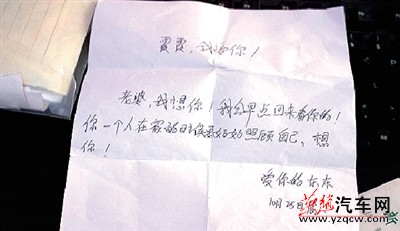 霞霞，我爱你！
老婆，我想你！我会早点回来看你的！
你一个人在家的时候要好好照顾自己，想
你！
爱你的东东
10月25日
汽车网
www.yzqcw.com